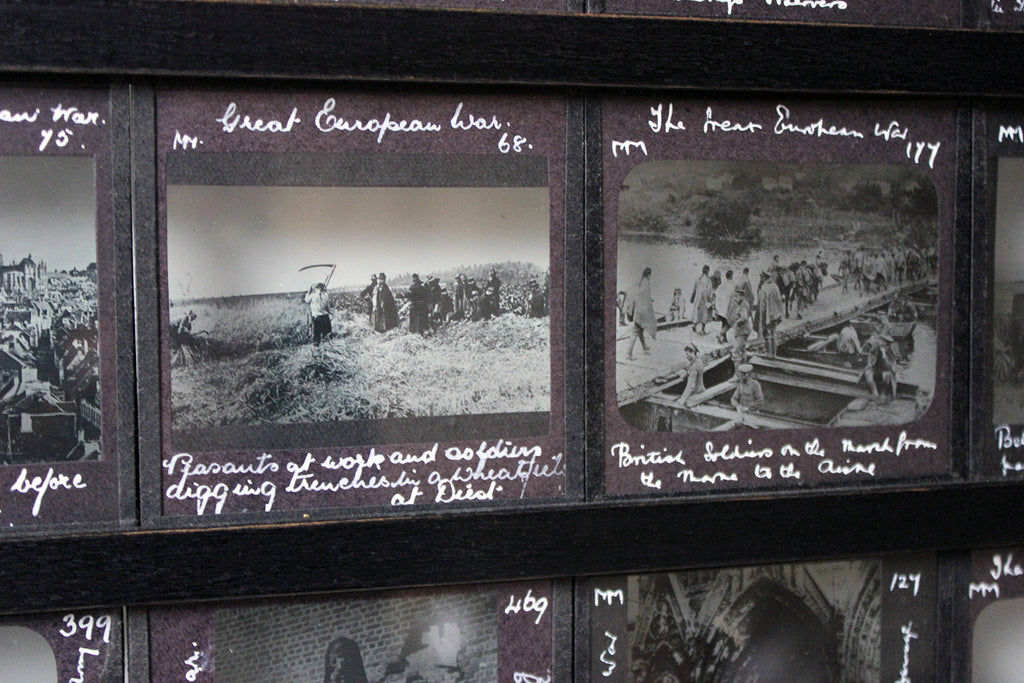 War.
75.
before
Great European War.
M.
68.
Peasants at work and soldiers
digging trenches in a wheatfield
at Diest
The Great European War
M
177
British Soldiers on the March from
the Marne to the Aisne
M
399
469
M
127
The
M